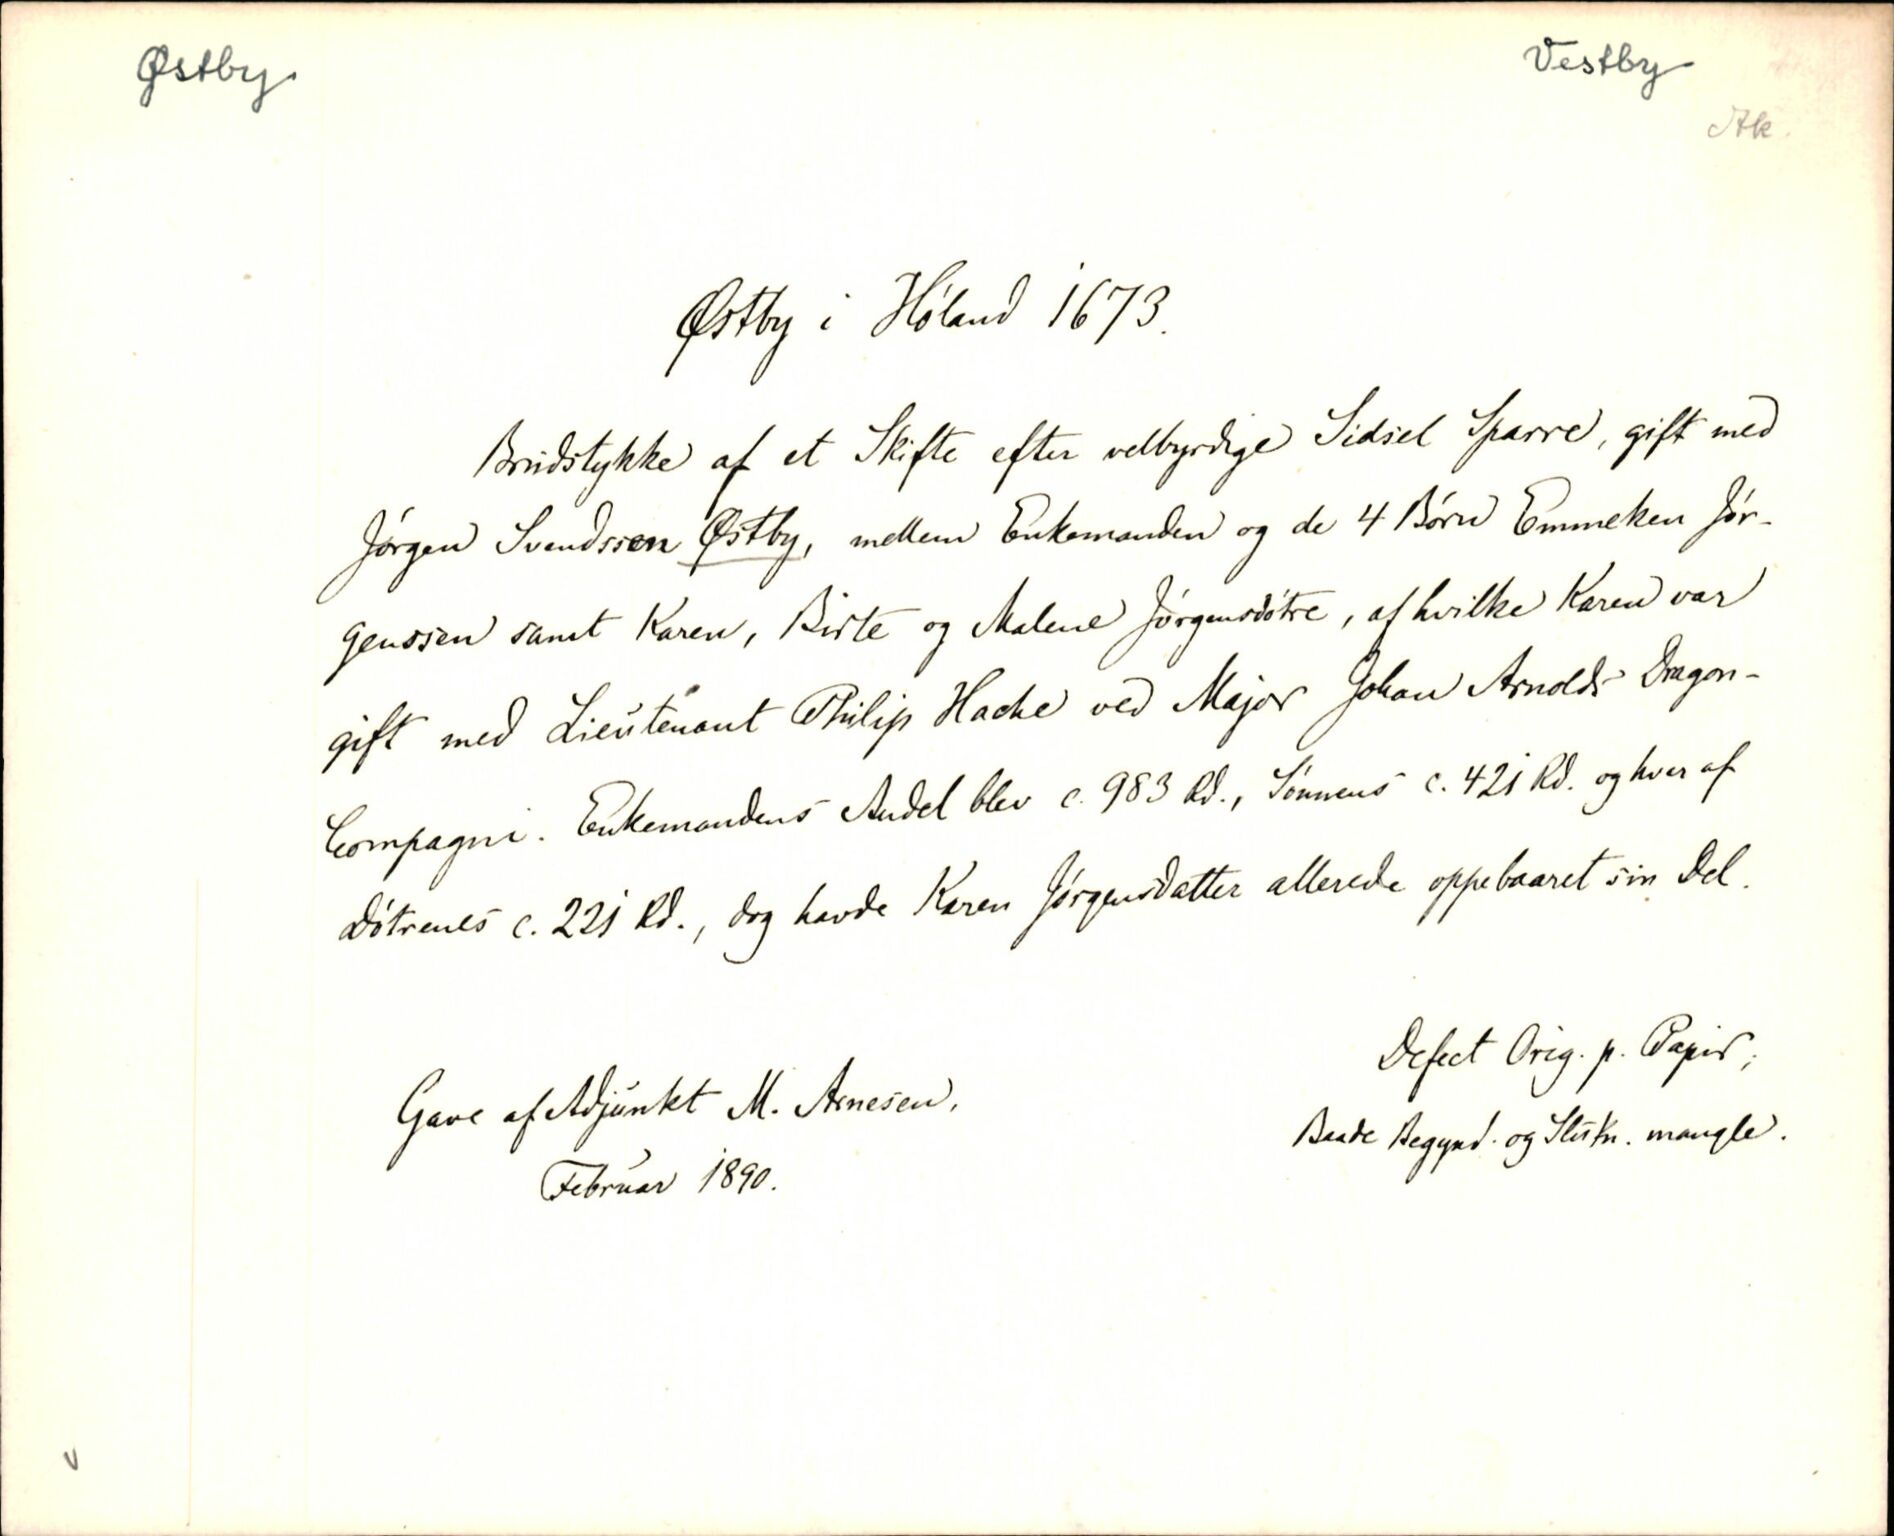 Østby
Vestby
Ak.
Østby i Høland 1673.
Brudstykke af et Skifte efter velbyrdige Sidsel Sparre, gift med
Jørgen Svendssen Østby, mellem Enkemanden og de 4 Børn Emmeken Jør-
genssen samt Karen, Birte og Malene Jørgensdøtre, af hvilke Karen var
gift med Lieutenant Philip Hacke ved Major Johan Arnolds Dragon-
Compagni. Enkemandens Andel blev c. 983 Rd., Sønnens c. 421 Rd. og hver af
Døtrenes c. 221 Rd., dog havde Karen Jørgensdatter allerede oppebaaret sin Del.
Defect Orig. p. Papir;
Baade Begynd. og Slutn. mangle.
Gave af Adjunkt M. Arnesen,
Februar 1890.
v